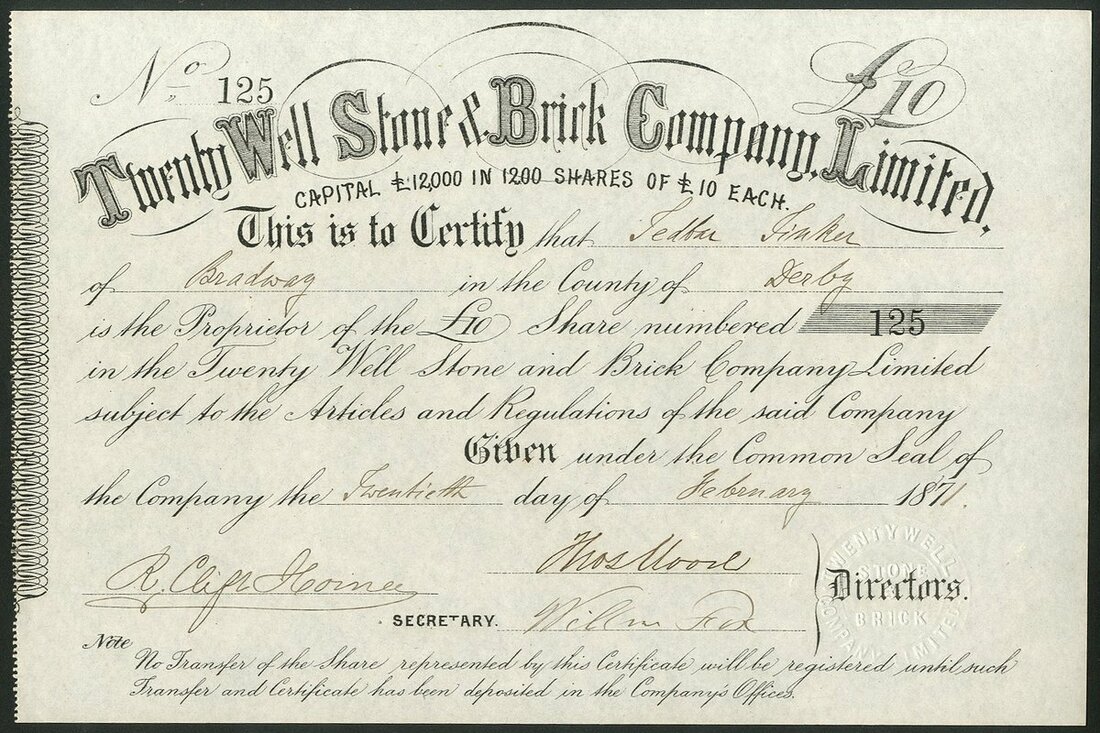 No 125
£10
Twenty Well Stone & Brick Company, Limited.
CAPITAL £12,000 IN 1200 SHARES OF £10 EACH.
This is to Certify that Tedbar Tinker
of Bradway in the County of Derby
is the Proprietor of the £10 Share numbered 125
in the Twenty Well Stone and Brick Company Limited
subject to the Articles and Regulations of the said Company
Given under the Common Seal of
the Company the Twentieth day of February 1871.
Thos Moore
R.
Directors.
SECRETARY. Willm Fox
TWENTYWELL STONE BRICK COMPANY LIMITED
Note
No Transfer of the Share represented by this Certificate will be registered until such
Transfer and Certificate has been deposited in the Company's Offices.